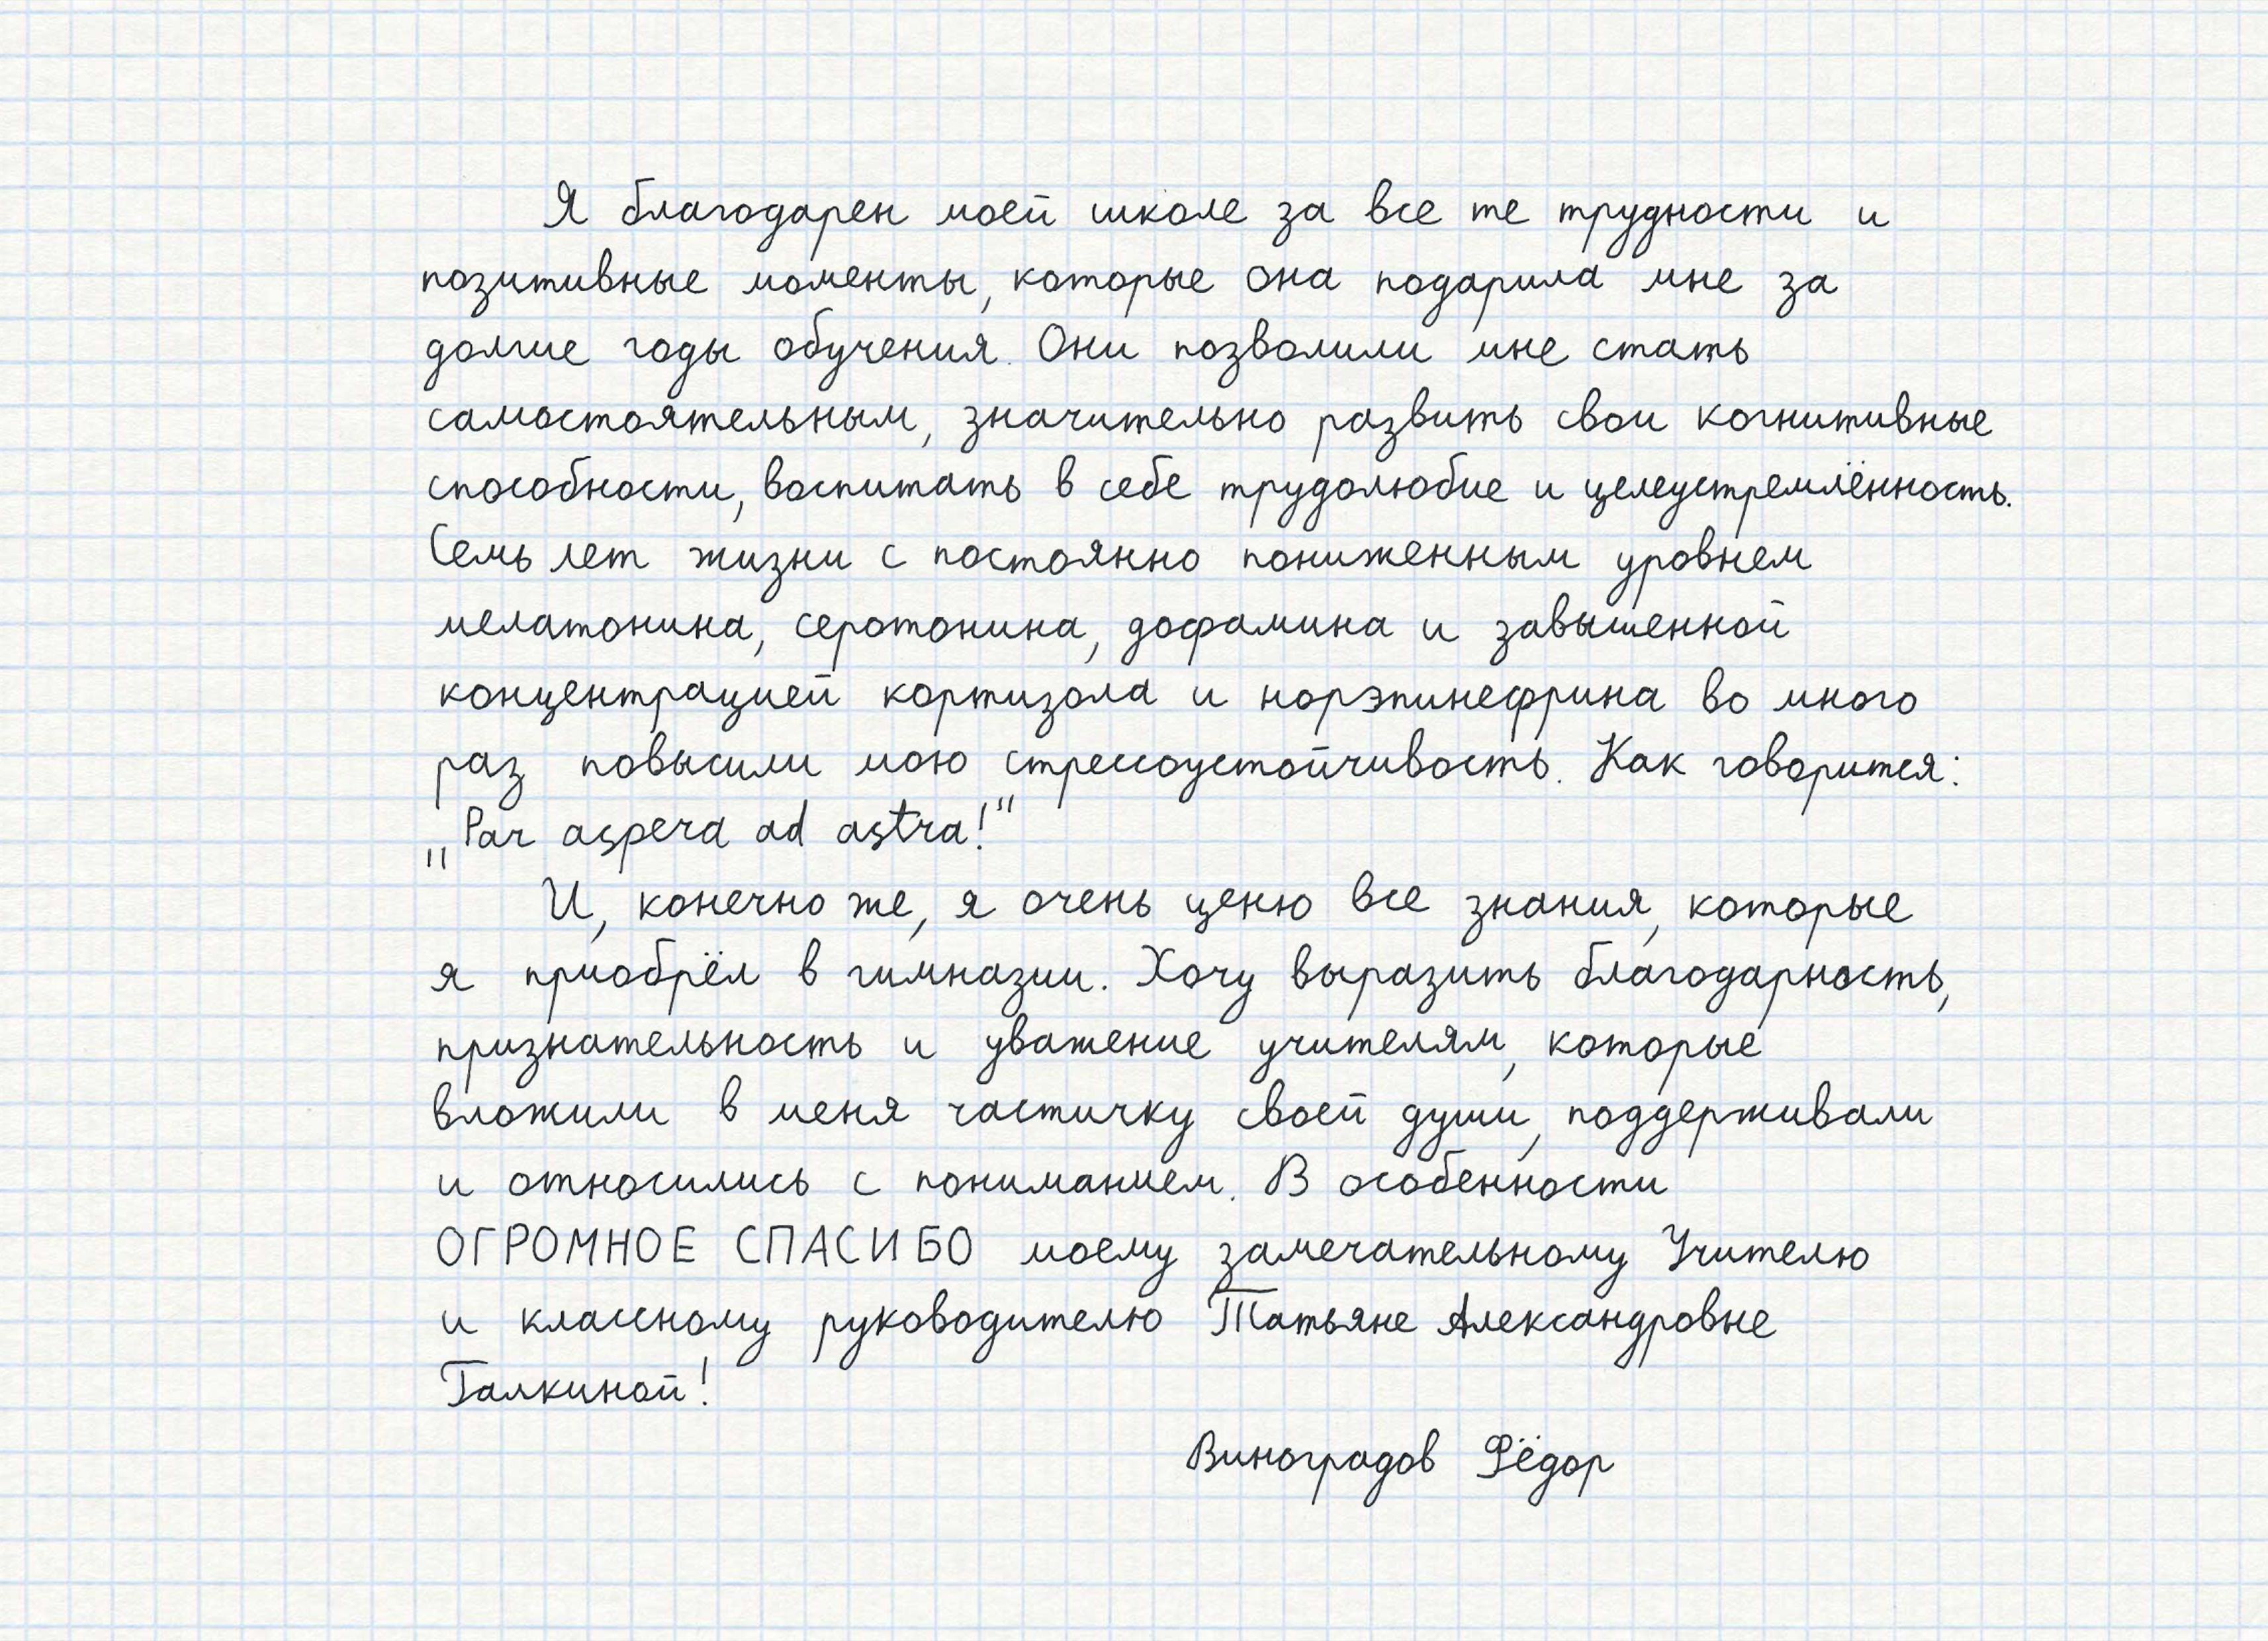 Я благодарен моей школе за все те трудности и
позитивные моменты, которые она подарила мне за
долгие годы обучения. Они позволили мне стать
самостоятельным, значительно развить свои когнитивные
способности, воспитать в себе трудолюбие и целеустремлённость.
Семь лет жизни с постоянно пониженным уровнем
мелатонина, серотонина, дофамина и завышенной
концентрацией кортизола и норэпинефрина во много
раз повысили мою стрессоустойчивость. Как говорится:
„Par aspera ad astra!“
И, конечно же, я очень ценю все знания, которые
я приобрёл в гимназии. Хочу выразить благодарность,
признательность и уважение учителям, которые
вложили в меня частичку своей души, поддерживали
и относились с пониманием. В особенности
ОГРОМНОЕ СПАСИБО моему замечательному Учителю
и классному руководителю Татьяне Александровне
Галкиной!
Виноградов Фёдор